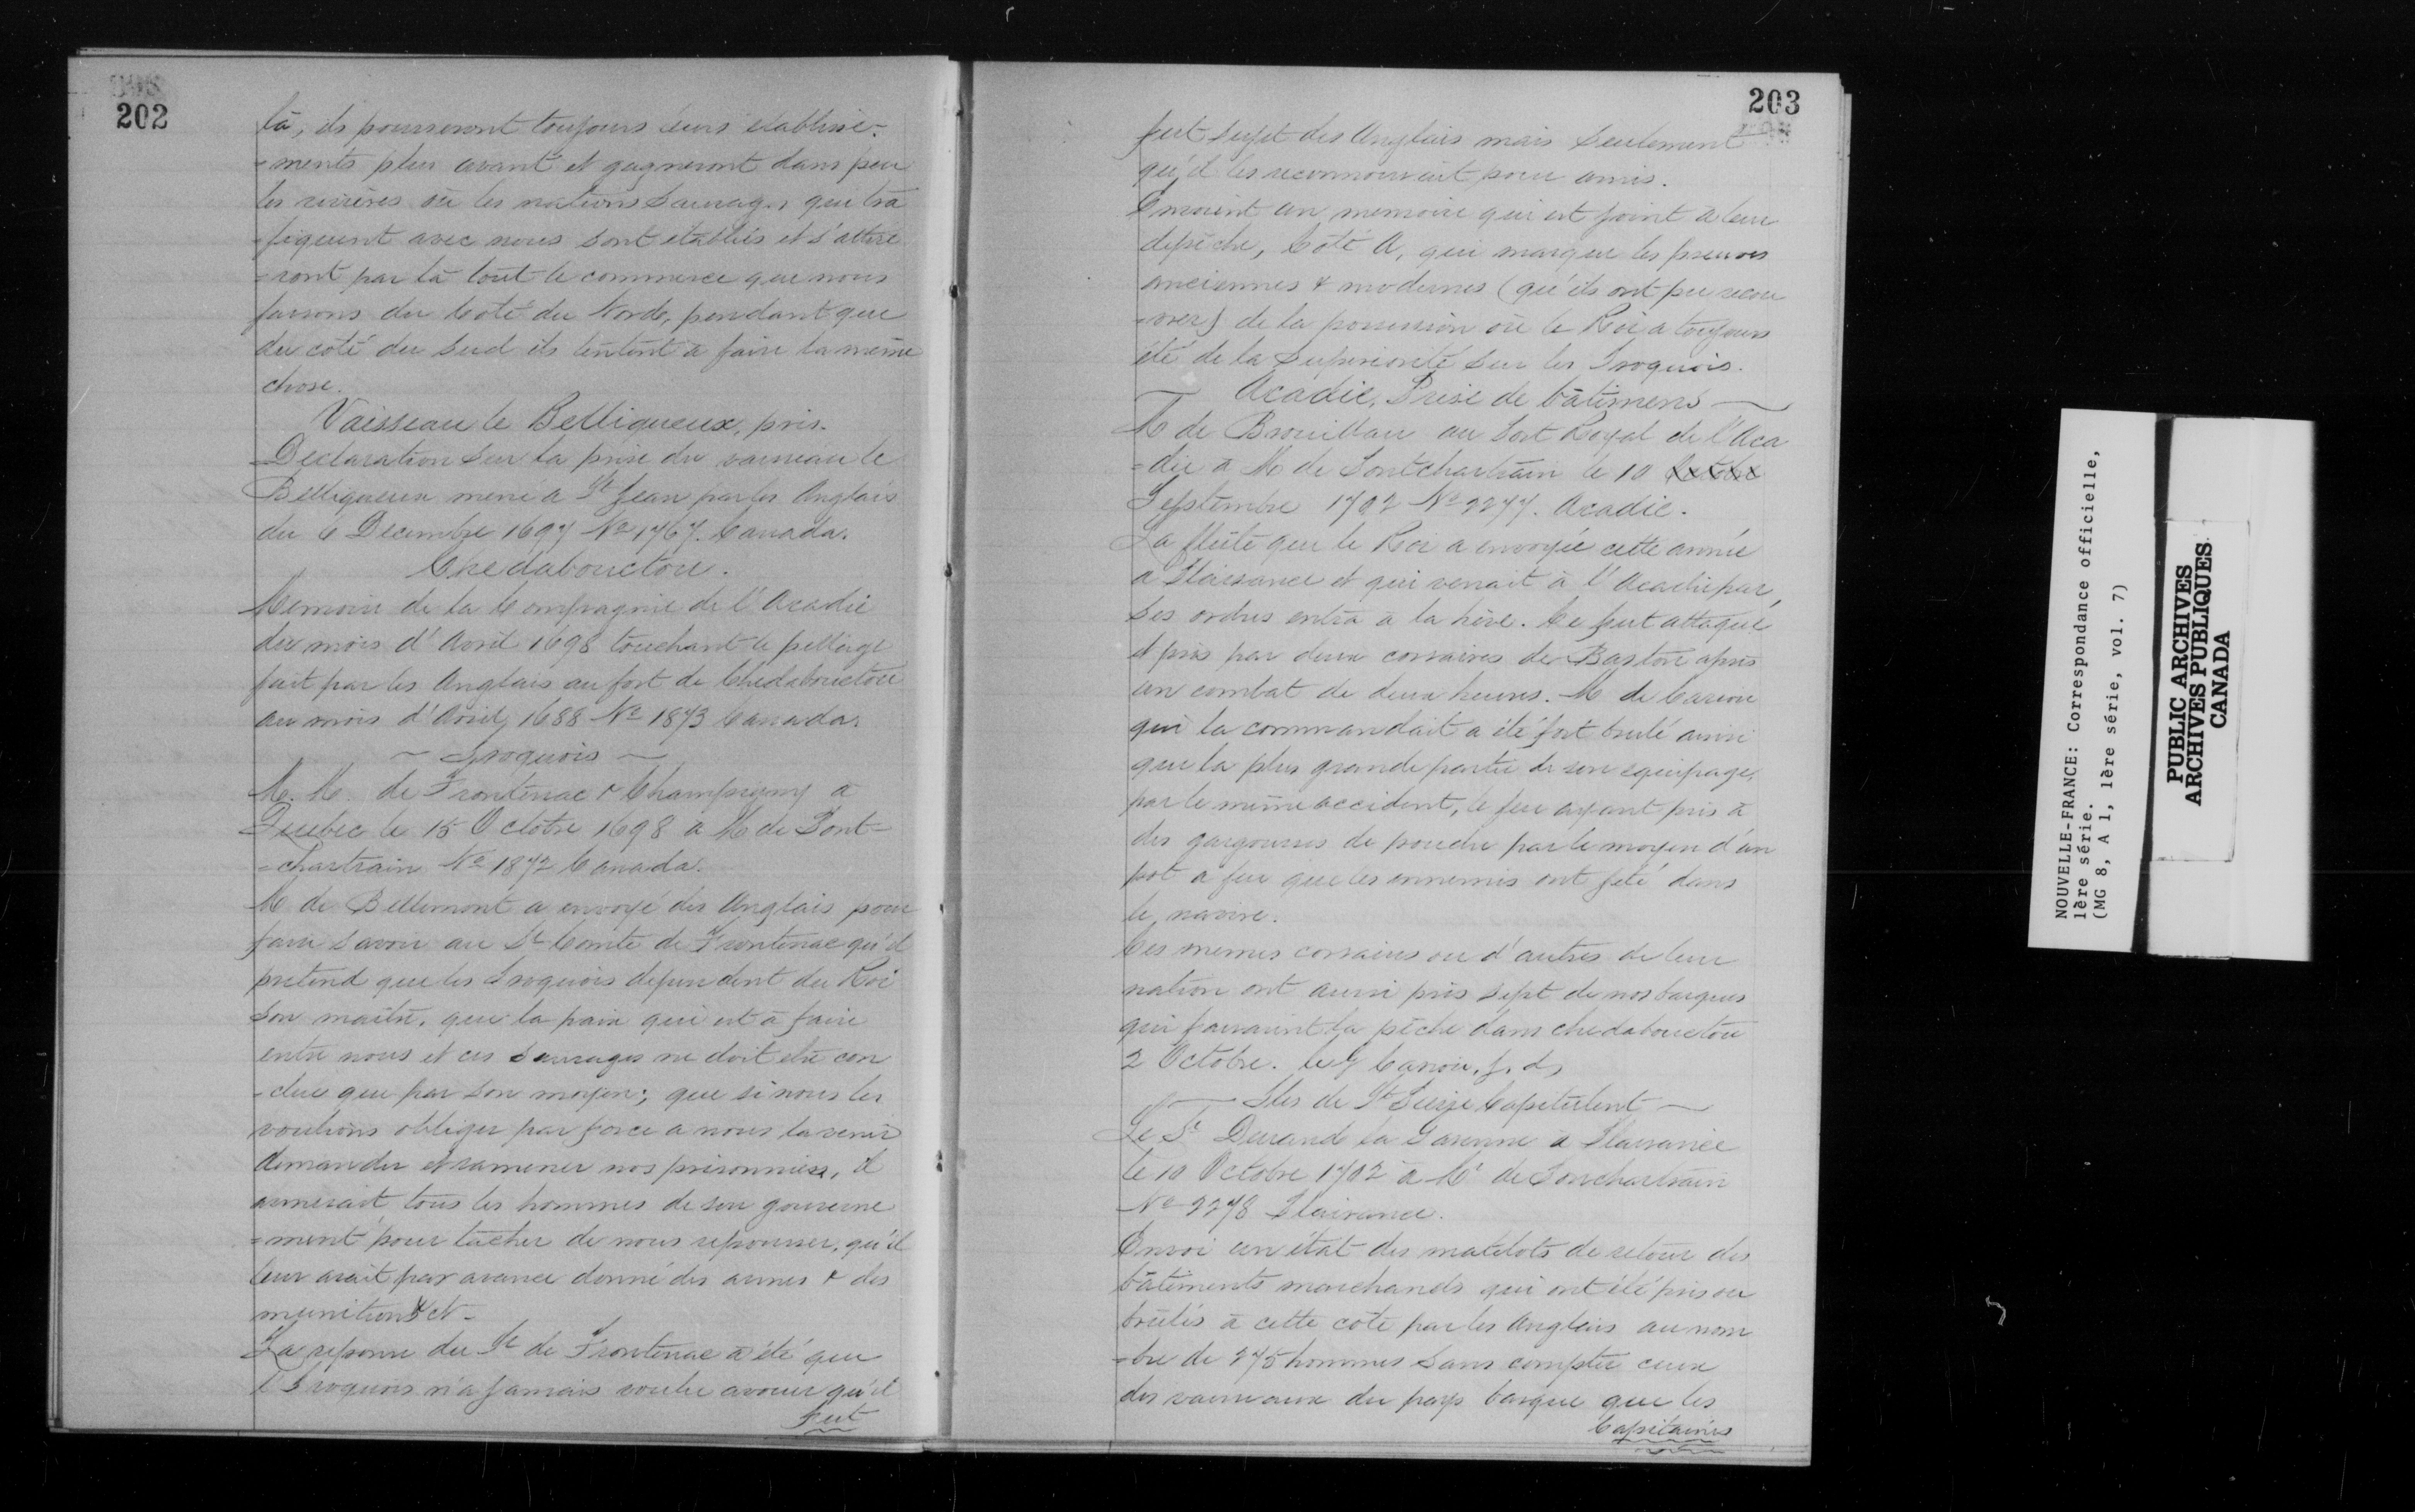 202
là, ils pousseront toujours leurs etablisse-
-ments plus avant et gagneront dans peu
les rivières où les nations Sauvages qui tra
-fiquent avec nous sont etablies et s'attire
-ront par là tout le commerce que nous
faisons du Coté du Nord, pendant que
du coté du Sud ils tentent à faire la même
chose.
Vaisseau le Belliqueux, pris.
Declaration Sur la prise du vaisseau le
Belliqueux mené à St Jean par les Anglais
du 6 Decembre 1697 No 1767. Canada.
Chedabouctou.
Memoire de la Compagnie de l'Acadie
du mois d'Avril 1698 touchant le pillage
fait par les Anglais au fort de Chedabouctou
au mois d'Avril 1688 No 1873 Canada.
Iroquois
M. M. de Frontenac & Champigny a
Quebec le 15 Octobre 1698 a M de Pont-
-chartrain No 1872 Canada.
M de Bellemont a envoyé des Anglais pour
faire savoir au Sr Comte de Frontenac qu'il
pretend que les Iroquois dependent du Roi
Son maître. que la paix qui est à faire
entre nous et ces Sauvages ne doit être con
-clue que par son moyen; que si nous les
voulions obliger par force a nous la venir
demander et ramener nos prisonniers, il
armerait tous les hommes de son gouverne
-ment pour tacher de nous repousser, qu'il
leur avait par avance donné des armes & des
munitions & ct-
La reponse du Sr de Frontenac a été que
l'Iroquois n'a jamais voulu avouer qu'il
Fut
203
fut Sujet des Anglais mais Seulement
qu'il les reconnouvait pour amis.
Envoient un memoire qui est joint a leur
depêche, Coté A, qui marque les preuves
anciennes & modernes (qu'ils ont pu recou
-vrer) de la possession où le Roi a toujours
été de la Superiorité Sur les Iroquois.
Acadie, Prise de bâtimens
M de Brouillan au Port Royal de l'Aca
-die à M de Pontchartrain le 10 Octobre
Septembre 1702 No 2277. Acadie.
La flûte que le Roi a envoyée cette année
a Plaisance et qui venait à l'Acadie par
Ses ordres entra a la hève. Ce fut attaquée
et pris par deux corsaires de Baston après
un combat de deux heures. M de
qui la commandait a été fort brulé ainsi
que la plus grande partie de son equipage,
par le même accident, le feu ayant pris à
des gargousses de poudre par le moyen d'un
pot à feu que les ennemis ont jeté dans
le navire.
Ces memes corsaires ou d'autres de leur
nation ont aussi pris sept de nos barques
qui faisaient la pêche dans chedabouctou
2 Octobre.
Iles de St Pierre Capitulent
Le Sr Durand la Garenne à Plaisance
le 10 Octobre 1702 à Mr de Ponchartrain
No 2278 Plaisance.
Envoi un état des matelots de retour des
bâtiments marchands qui ont été pris ou
brûlés à cette côte par les Anglais au nom
-bre de 275 hommes Sans compter ceux
des vaisseaux du pays basque que les
Capitaines
NOUVELLE-FRANCE: Correspondance officielle,
1ère série.
(MG 8, A 1, 1ère série, vol. 7)
PUBLIC ARCHIVES
ARCHIVES PUBLIQUES
CANADA